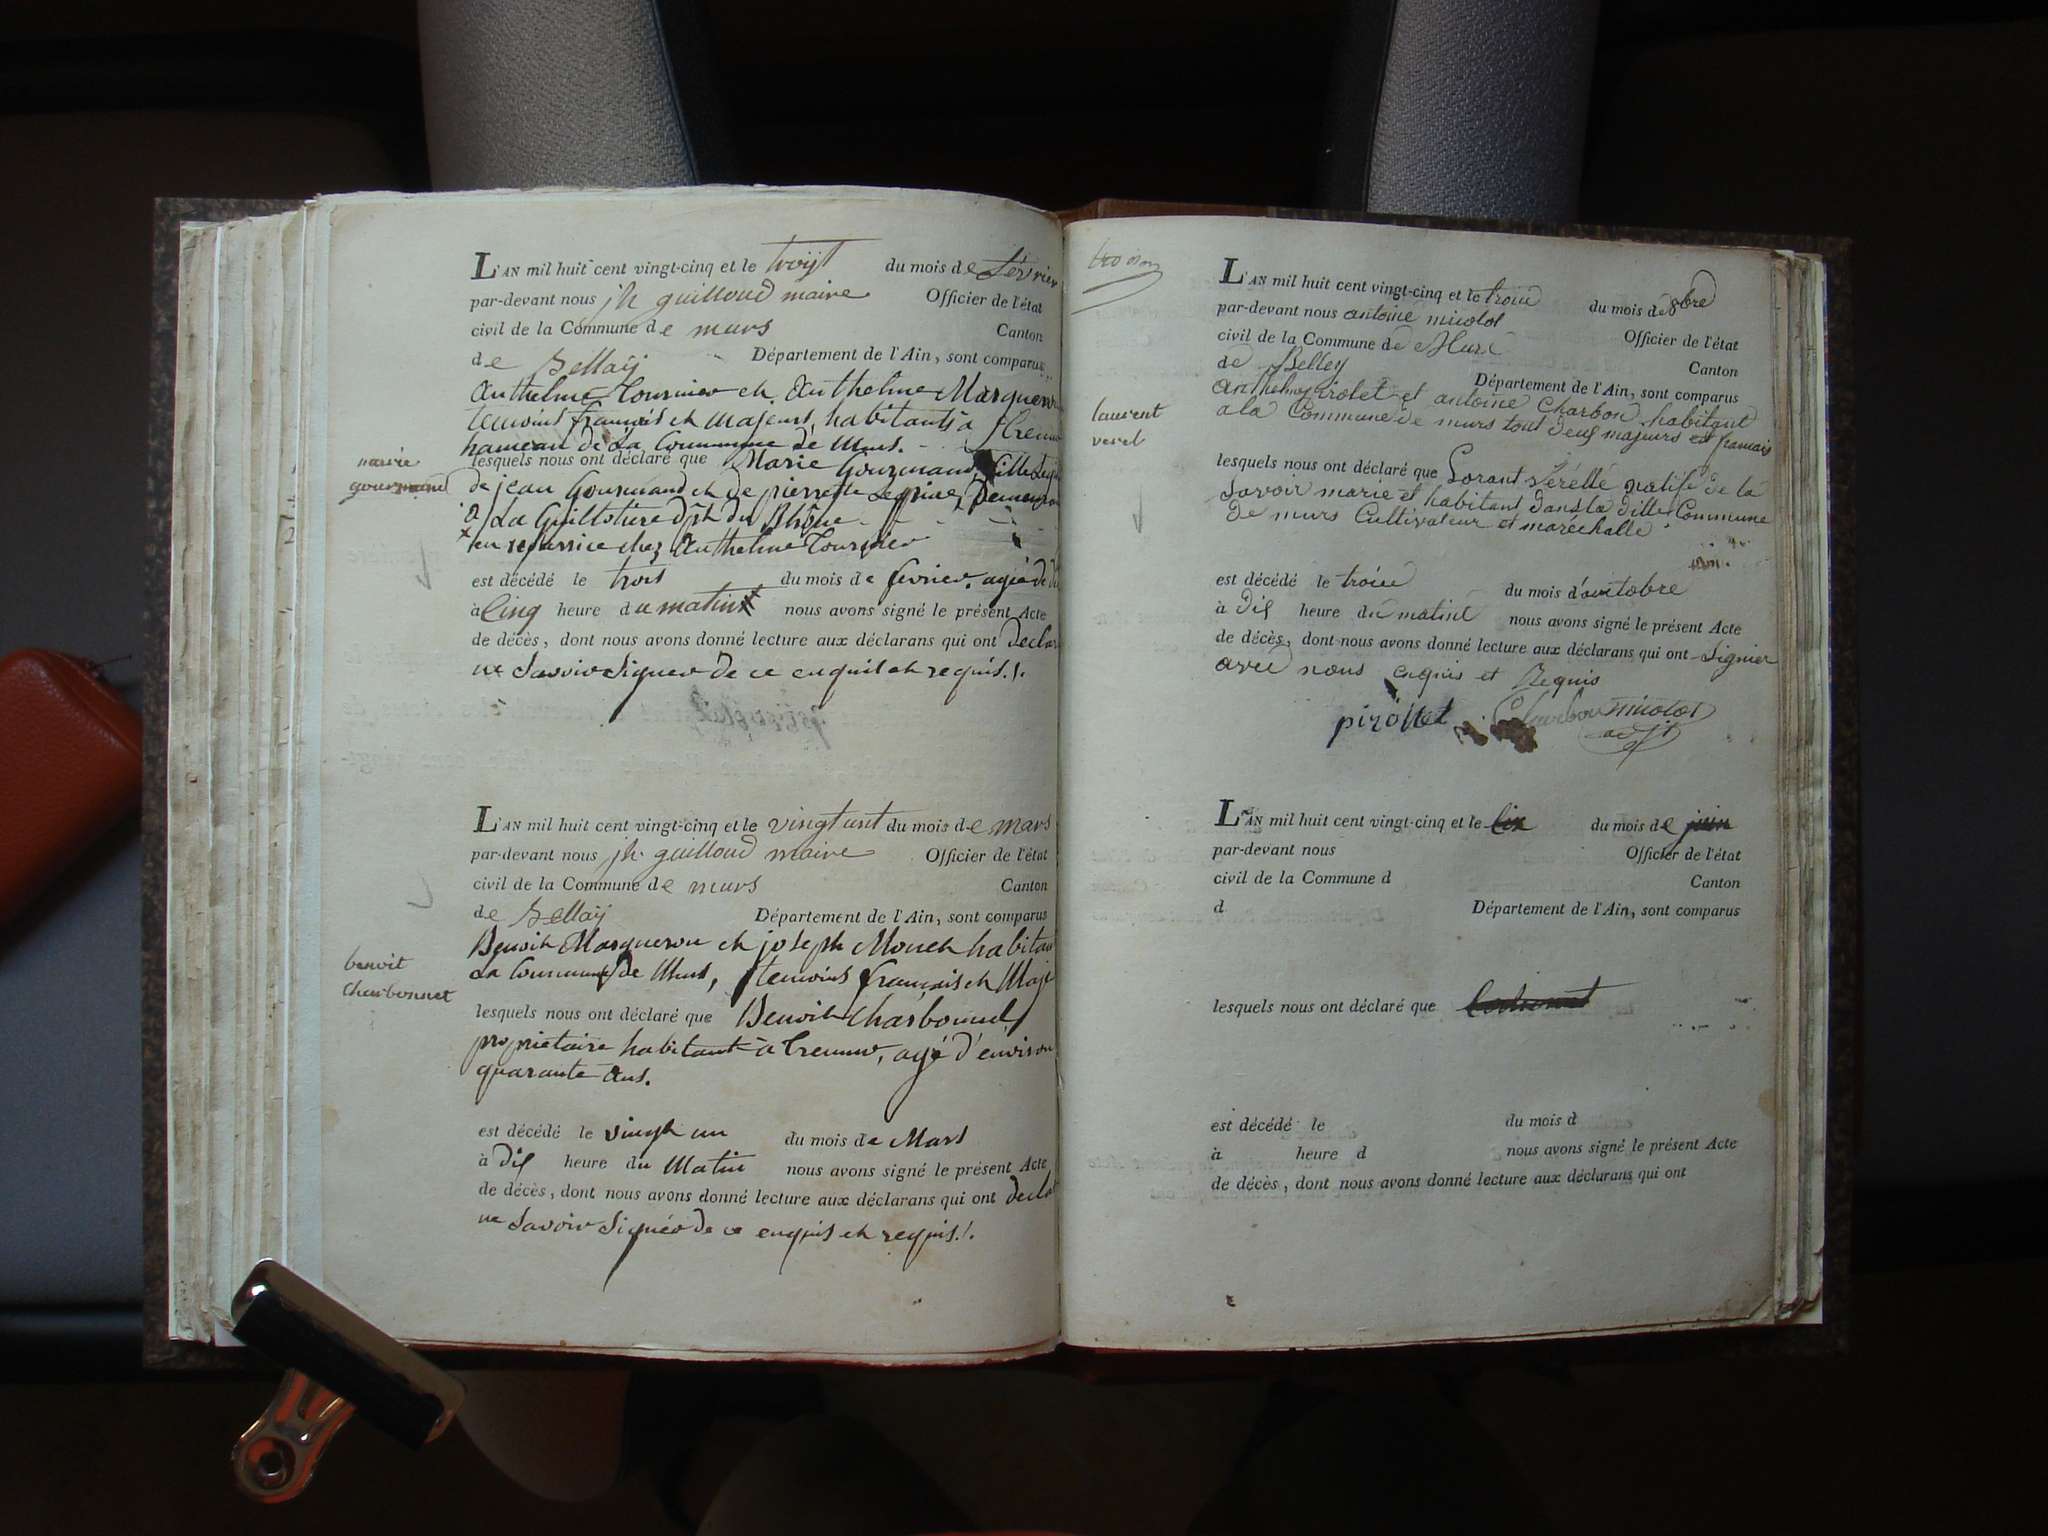 L'AN mil huit cent vingt-cinq et le troist du mois de février
par-devant nous jh guilloud maire Officier de l'état
civil de la Commune de murs Canton
de Bellaÿ Département de l'Ain, sont comparus
Anthelme Tournier et Anthelme Marqueron
temoins français et majeurs, habitants à
hameau de La Commune de Murs.
marie
gourmand
lesquels nous ont déclaré que Marie Gourmand, fille
de jean Gourmand et de pierrette
à La Guillotière dpt du Rhône
en service chez Anthelme Tournier
est décédé le trois du mois de fevrier, agée de
à Cinq heure du matin nous avons signé le présent Acte
de décès, dont nous avons donné lecture aux déclarans qui ont declaré
ne Savoir Signer de ce enquis et requis.
L'AN mil huit cent vingt-cinq et le vingt unt du mois de mars
par-devant nous jh guilloud maire Officier de l'état
civil de la Commune de murs Canton
de Bellaÿ Département de l'Ain, sont comparus
Benoit Marqueron et joseph Monet habitant
La Commune de Murs, temoins français et Maje
benoit
charbonnet
lesquels nous ont déclaré que Benoit Charbonnet
propriétaire habitant à agé d'environ
quarante Ans.
est décédé le vingt un du mois de Mars
à dix heure du Matin nous avons signé le présent Acte
de décès, dont nous avons donné lecture aux déclarans qui ont declaré
ne Savoir Signer de ce enquis et requis.
L'AN mil huit cent vingt-cinq et le troice du mois de 8bre
par-devant nous antoine micolot Officier de l'état
civil de la Commune de Murs Canton
de Belley Département de l'Ain, sont comparus
anthelme pirolet et antoine Charbon habitant
a la Commune de murs tout deux majeurs et francais
laurent
verel
lesquels nous ont déclaré que Lorant Vérélle natife de la
Savoir marie et habitant dans la ditte Commune
de murs Cultivateur et maréchalle
est décédé le troice du mois d'outtobre
à dix heure du matine nous avons signé le présent Acte
de décès, dont nous avons donné lecture aux déclarans qui ont Signier
avec nous enquis et Requis
pirollet Charbon micolot
adjt
L'AN mil huit cent vingt-cinq et le du mois de juin
par-devant nous Officier de l'état
civil de la Commune d Canton
d Département de l'Ain, sont comparus
lesquels nous ont déclaré que
est décédé le du mois d
à heure d nous avons signé le présent Acte
de décès, dont nous avons donné lecture aux déclarans qui ont